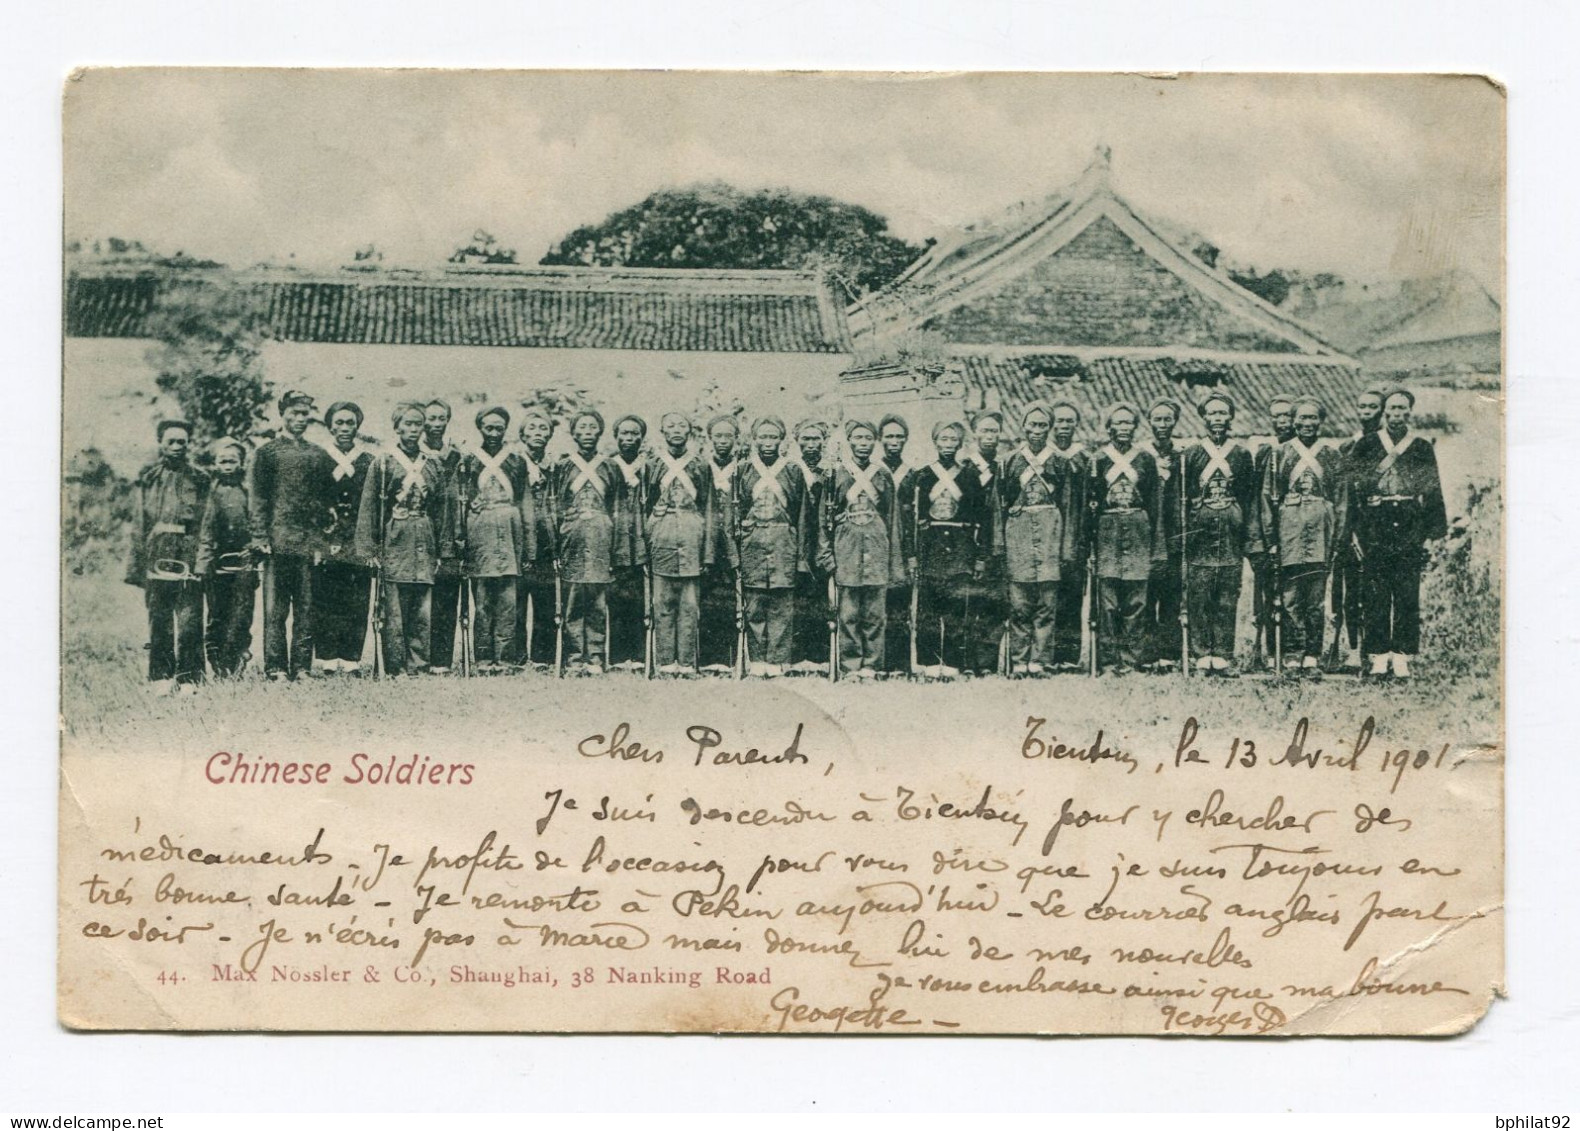 Chers Parents,
Tientsin, le 13 Avril 1901.
Chinese Soldiers
Je suis descendu à Tientsin pour y chercher des
médicaments - Je profite de l'occasion pour vous dire que je suis toujours en
très bonne santé - Je remonte à Pékin aujourd'hui - Le courrier anglais part
ce soir - Je n'écris pas à Marie mais donnez lui de mes nouvelles
44. Max Nössler & Co., Shanghai, 38 Nanking Road
Je vous embrasse ainsi que ma bonne
Geogette - Georges D
bphilat92